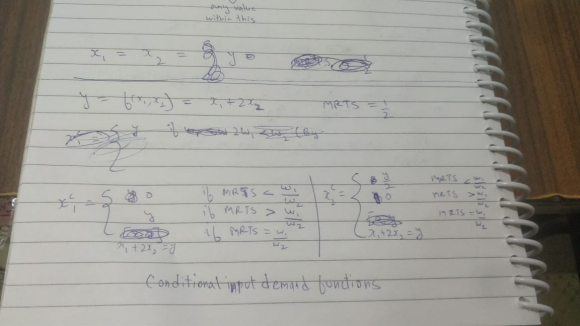 any value
within this
x₁ = x₂ = y
y = f(x₁,x₂) = x₁+2x₂ MRTS = 1/2
x₁ᶜ = { 0 if MRTS < w₁/w₂
y if MRTS > w₁/w₂
x₁+2x₂=y if MRTS = w₁/w₂
x₂ᶜ = { y/2 MRTS < w₁/w₂
0 MRTS > w₁/w₂
x₁+2x₂=y MRTS = w₁/w₂
Conditional input demand functions